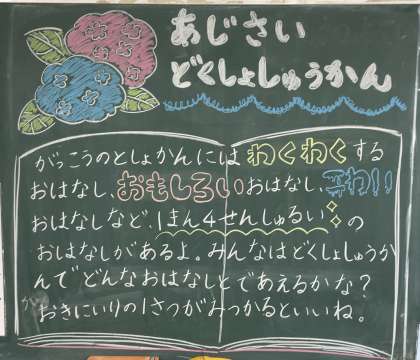 あじさい
どくしょしゅうかん
がっこうのとしょかんには わくわくする
おはなし、おもしろいおはなし、こわい
おはなしなど、1まん4せんしゅるいの
おはなしがあるよ。みんなはどくしょしゅうか
んで どんなおはなしとであえるかな?
おきにいりの1さつがみつかるといいね。